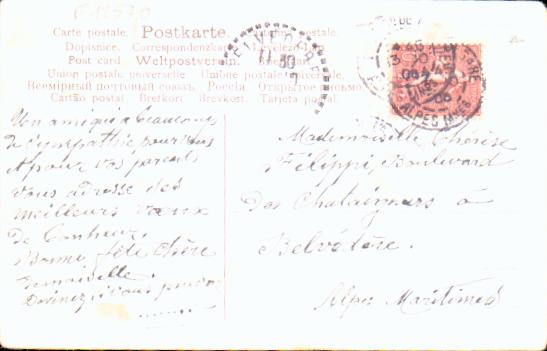 F 12570
Carte postale. Postkarte.
Dopisnice. Correspondenzkarte. Levelező-Lap.
Post card. Weltpostverein.
Union postale universelle. Unione postale
Всемірный почтовый союзъ. Россія. Открытое письмо
Cartão postal. Brefkort. Brevkort. Tarjeta postal.
BELVEDERE
11 30
ALPES MMES
Un ami qui a beaucoup
de sympathie pour vous
& pour vos parents
vous adresse des
meilleurs vœux
de bonheur.
Bonne fête chère
demoiselle.
Devinez si vous pouvez
........
Mademoiselle Thérèse
Filippi, Boulevard
des Chataigners à
Belvédère.
Alpes Maritimes